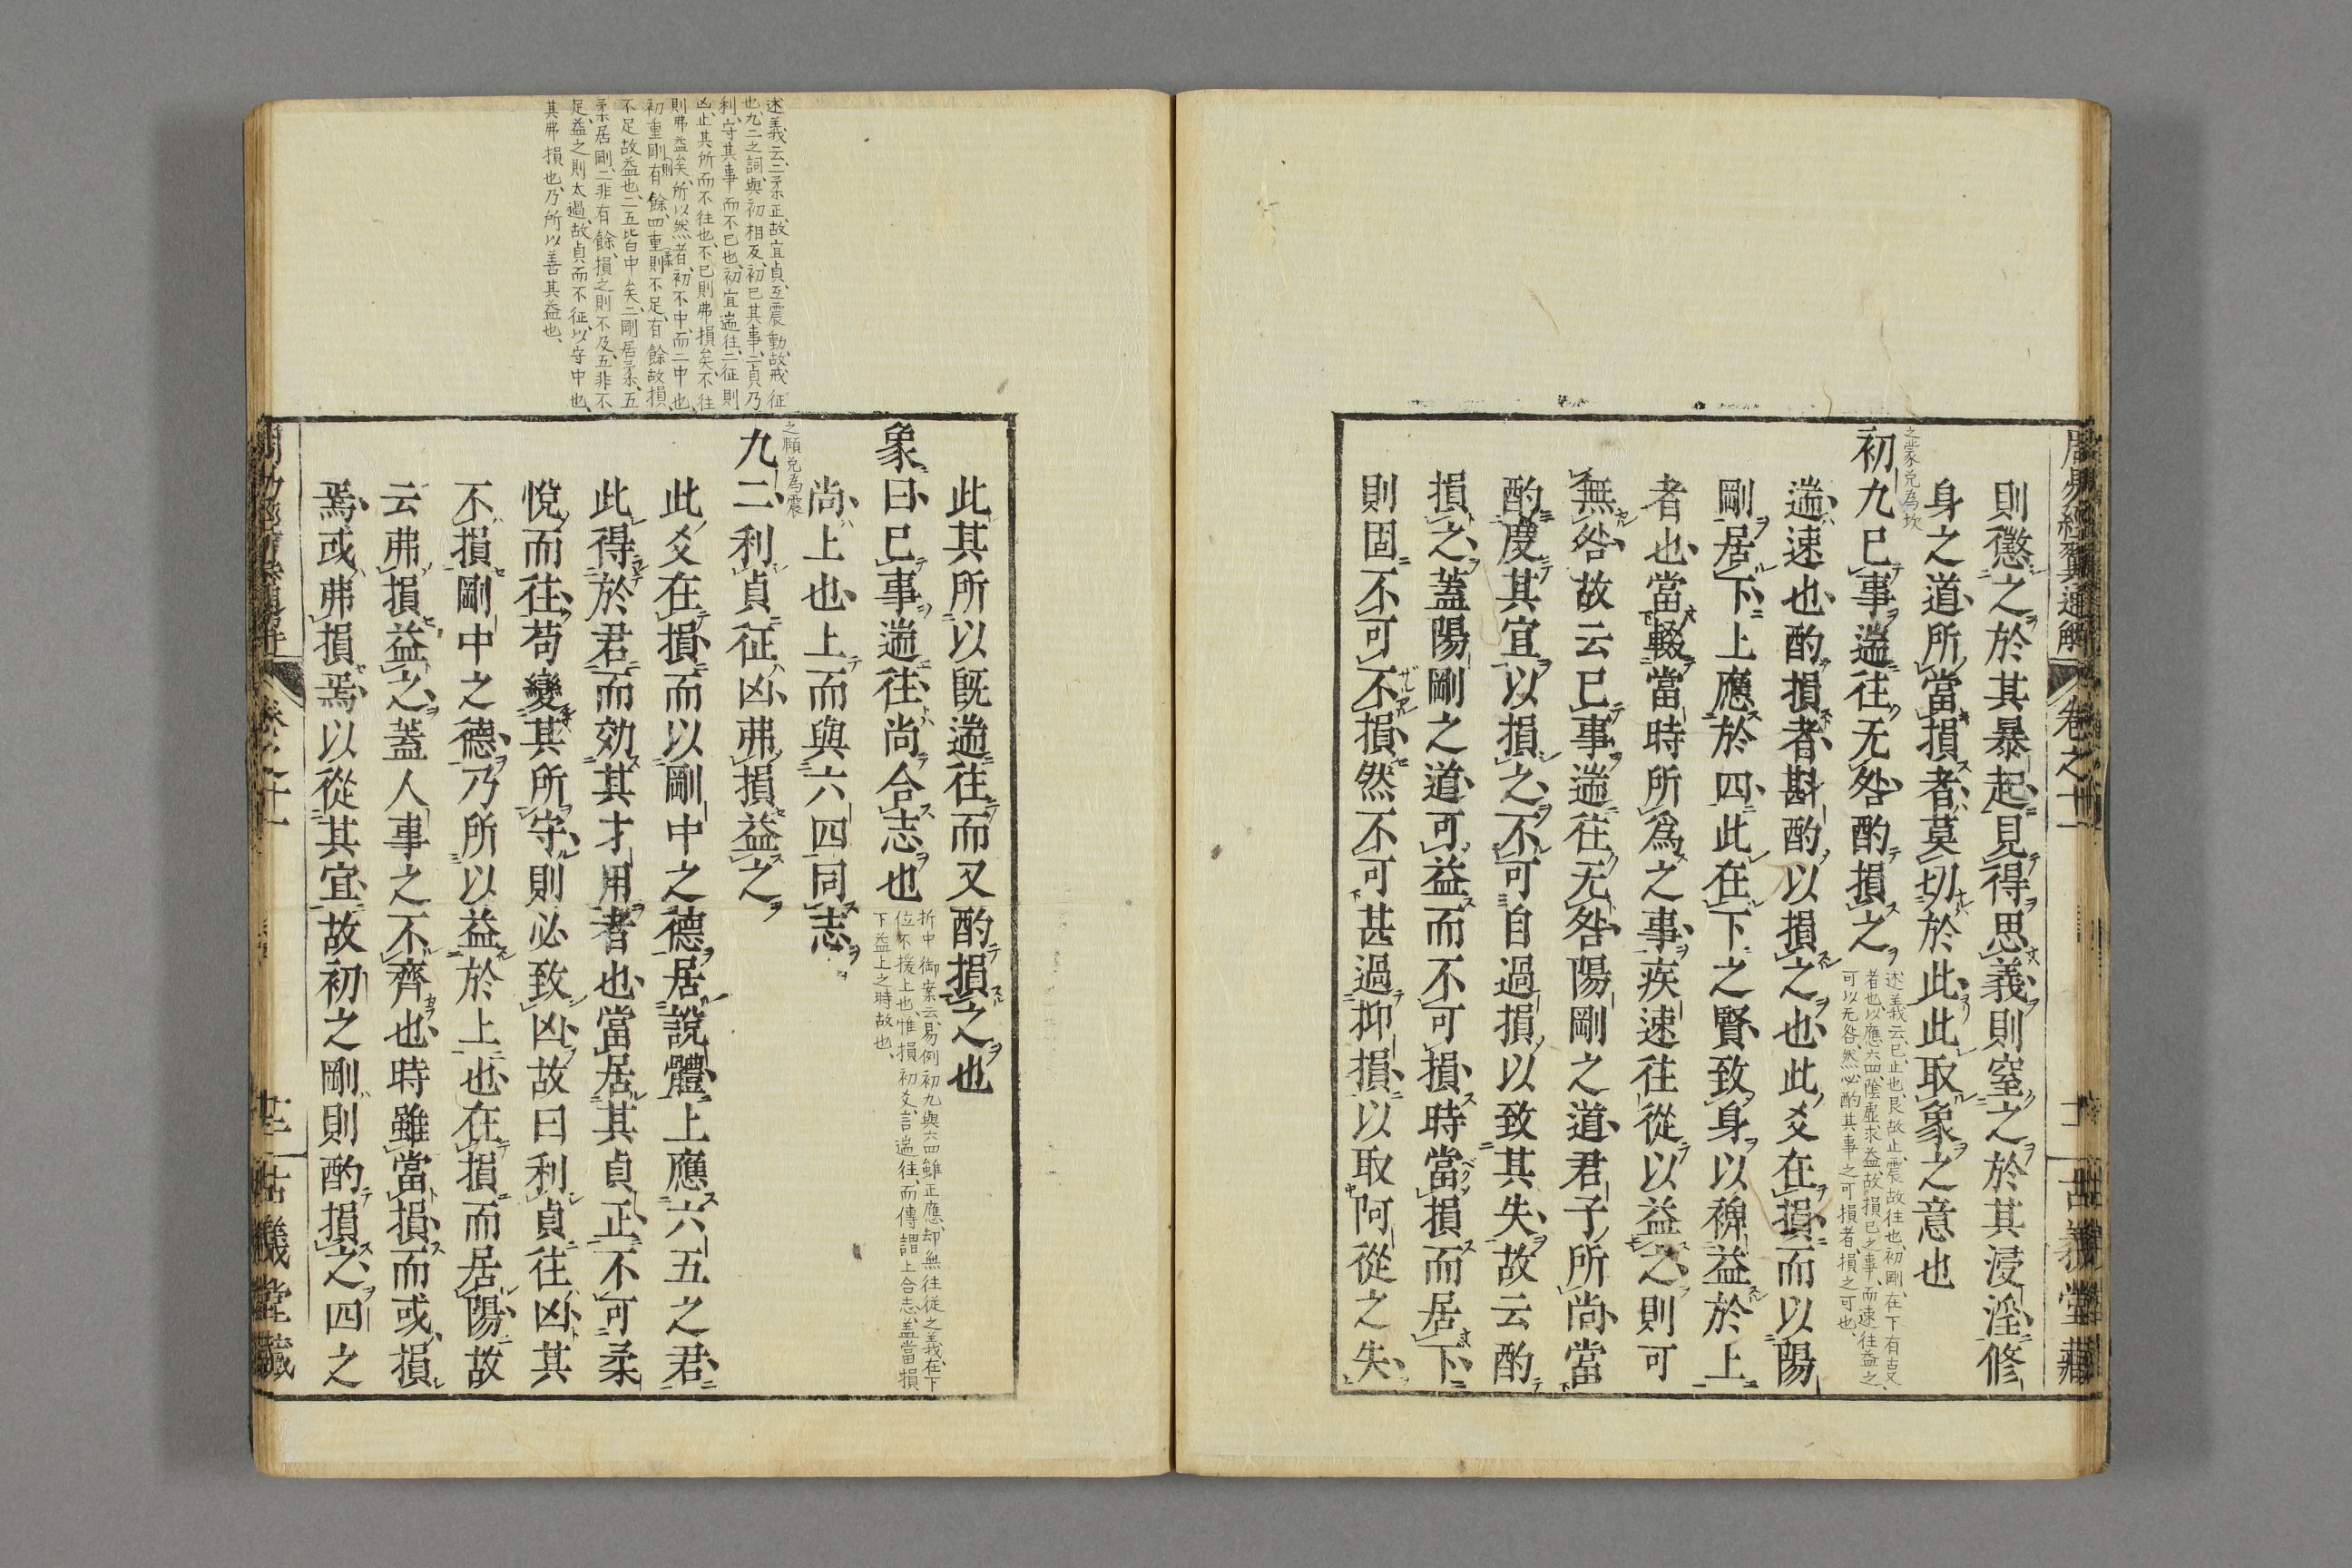 周易經翼通解 卷之十一 十二 古義堂藏
則懲之於其暴起見得思義則窒之於其浸淫修
身之道所當損者莫切於此此取象之意也
之蒙兌為坎
初九已事遄往无咎酌損之
述義云已止也艮故止震故往也初剛在下有吉又
者也以應六四陰虛求益故損已之事而速往益之
可以无咎然必酌其事之可損者損之可也
遄速也酌損者斟酌以損之也此爻在損而以陽
剛居下上應於四此在下之賢致身以裨益於上
者也當輟當時所爲之事疾速往從以益之則可
無咎故云已事遄往无咎陽剛之道君子所尚當
酌度其宜以損之不可自過損以致其失故云酌
損之蓋陽剛之道可益而不可損時當損而居下
則固不可不損然不可甚過抑損以取阿從之失
此其所以既遄往而又酌損之也
象曰已事遄往尚合志也
折中御案云易例初九與六四雖正應却無往從之義在下
位不援上也惟損初爻言遄往而傳謂上合志蓋當損
下益上之時故也
尚上也上而與六四同志
之頤兌為震
九二利貞征凶弗損益之
述義云二柔正故宜貞互震動故戒征
也九二之詞與初相反初已其事二貞乃
利守其事而不已也初宜遄往二征則
凶止其所而不往也不已則弗損矣不往
則弗益矣所以然者初不中而二中也
初重剛則有餘四重柔則不足有餘故損
不足故益也二五皆中矣二剛居柔五
柔居剛二非有餘損之則不及五非不
足益之則太過故貞而不征以守中也
其弗損也乃所以善其益也
此爻在損而以剛中之德居說體上應六五之君
此得於君而効其才用者也當居其貞正不可柔
悅而往苟變其所守則必致凶故曰利貞往凶其
不損剛中之德乃所以益於上也在損而居陽故
云弗損益之蓋人事之不齊也時雖當損而或損
焉或弗損焉以從其宜故初之剛則酌損之四之
周易經翼通解 卷之十一 十三 古義堂藏